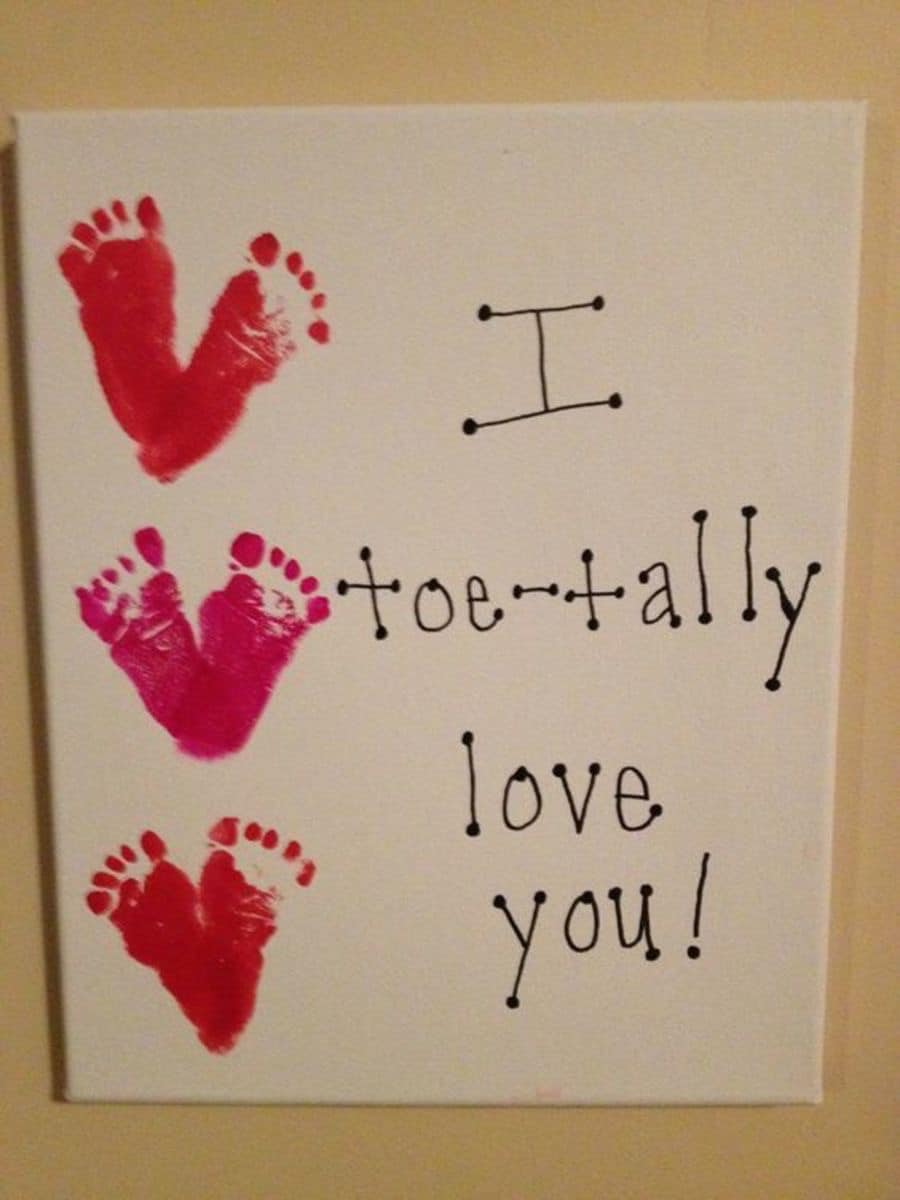 I
toe-tally
love
you!